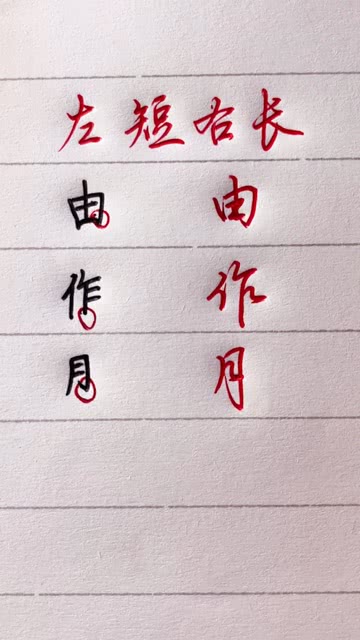 左短右长
由 由
作 作
月 月